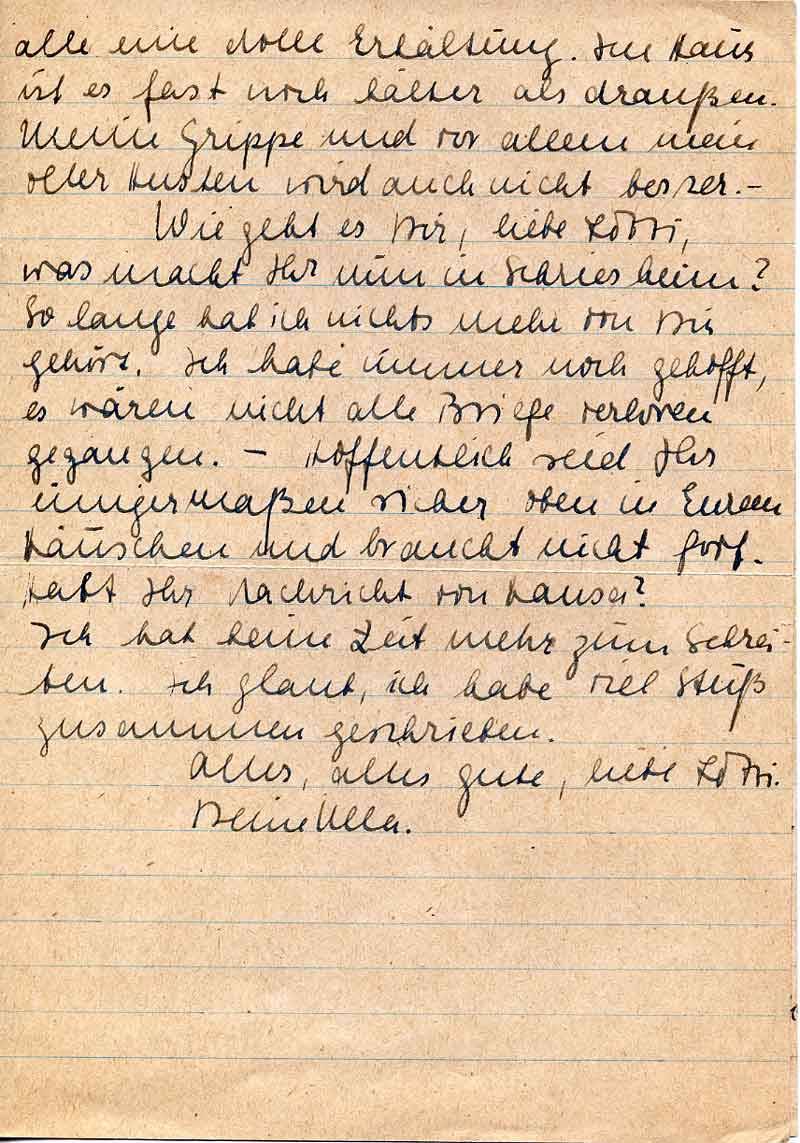 alle eine dolle Erkältung. Im Haus
ist es fast noch kälter als draußen.
Meine Grippe und vor allem mein
oller Husten wird auch nicht besser. –
Wie geht es Dir, liebe Lotti,
was macht Ihr nun in Schriesheim?
So lange hab ich nichts mehr von Dir
gehört. Ich habe immer noch gehofft,
es wären nicht alle Briefe verloren
gegangen. – Hoffentlich seid Ihr
einigermaßen sicher oben in Eurem
Häuschen und braucht nicht fort.
Habt Ihr Nachricht von Hause?
Ich hab keine Zeit mehr zum Schrei-
ben. Ich glaub, ich habe viel Stuß
zusammen geschrieben.
Alles, alles gute, liebe Lotti.
Deine Ulla.